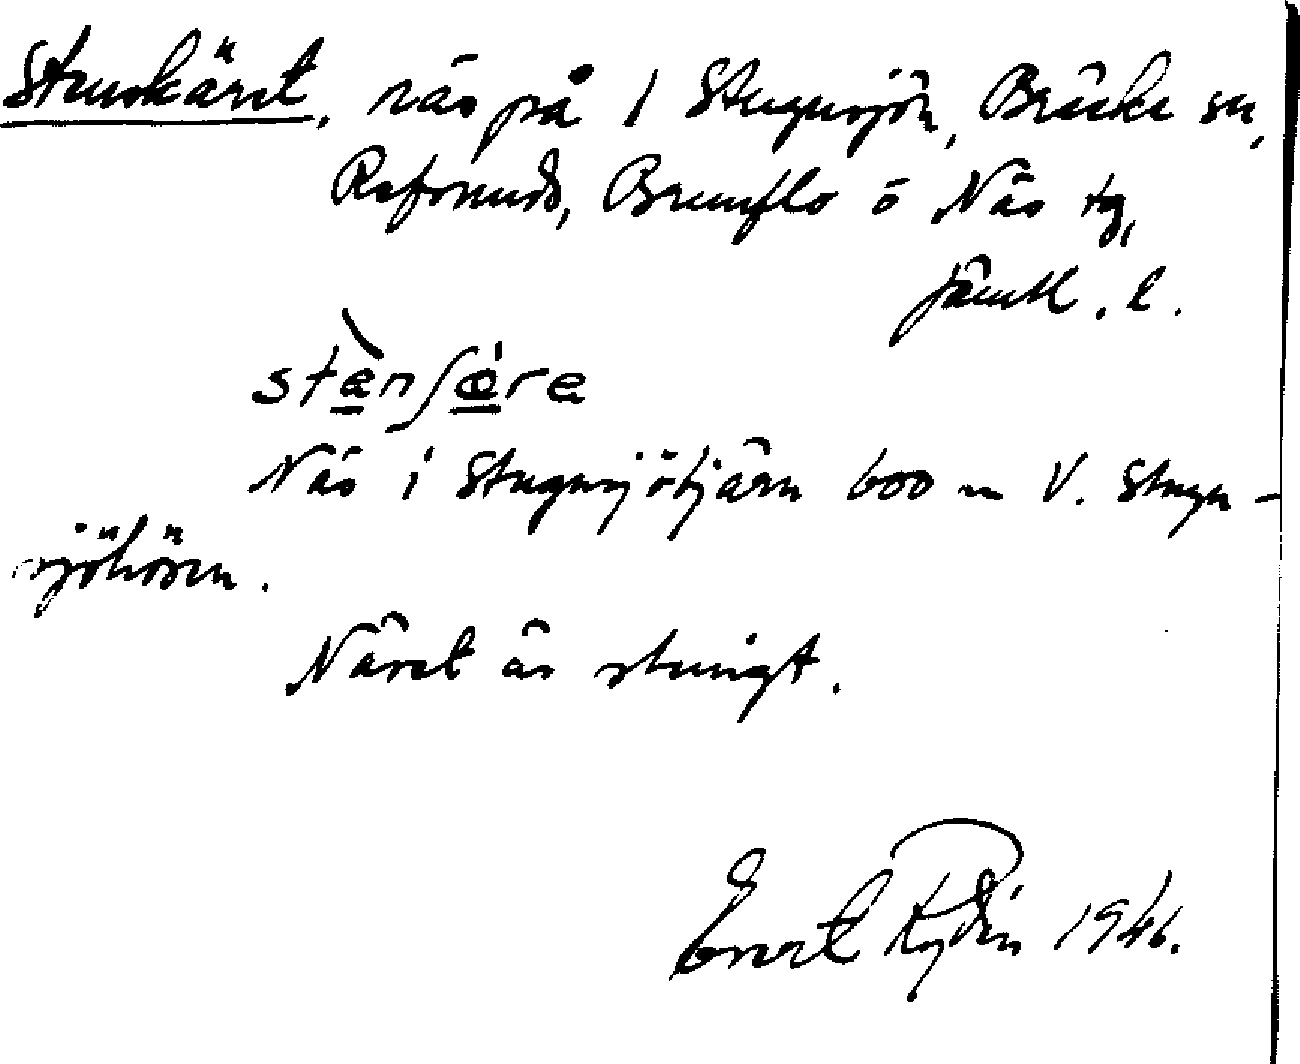 Stenskäret, näs på 1 Stugusjön, Bräcke sn,
Refsunds, Brunflo o Näs tg,
Jämtl. l.
stènʃære
Näs i Stugusjötjärn 600 m V. Stugu-
sjöhösen.
Näset är stenigt.
Evert Rydin 1946.